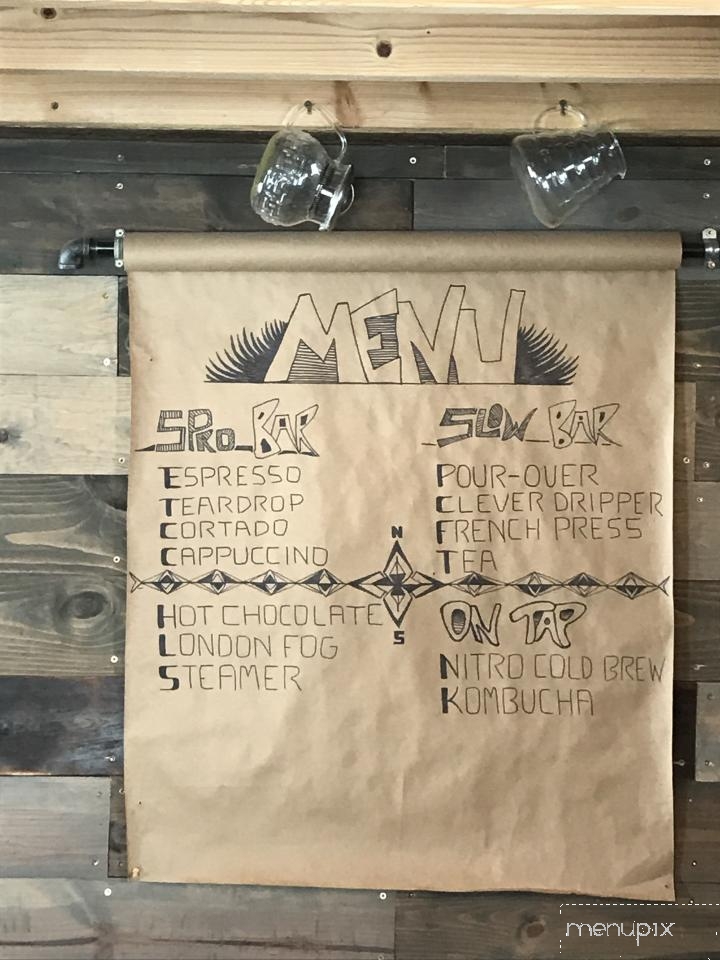 MENU
SPRO BAR
ESPRESSO
TEARDROP
CORTADO
CAPPUCCINO
HOT CHOCOLATE
LONDON FOG
STEAMER
SLOW BAR
POUR-OVER
CLEVER DRIPPER
FRENCH PRESS
TEA
N
S
ON TAP
NITRO COLD BREW
KOMBUCHA
menupix